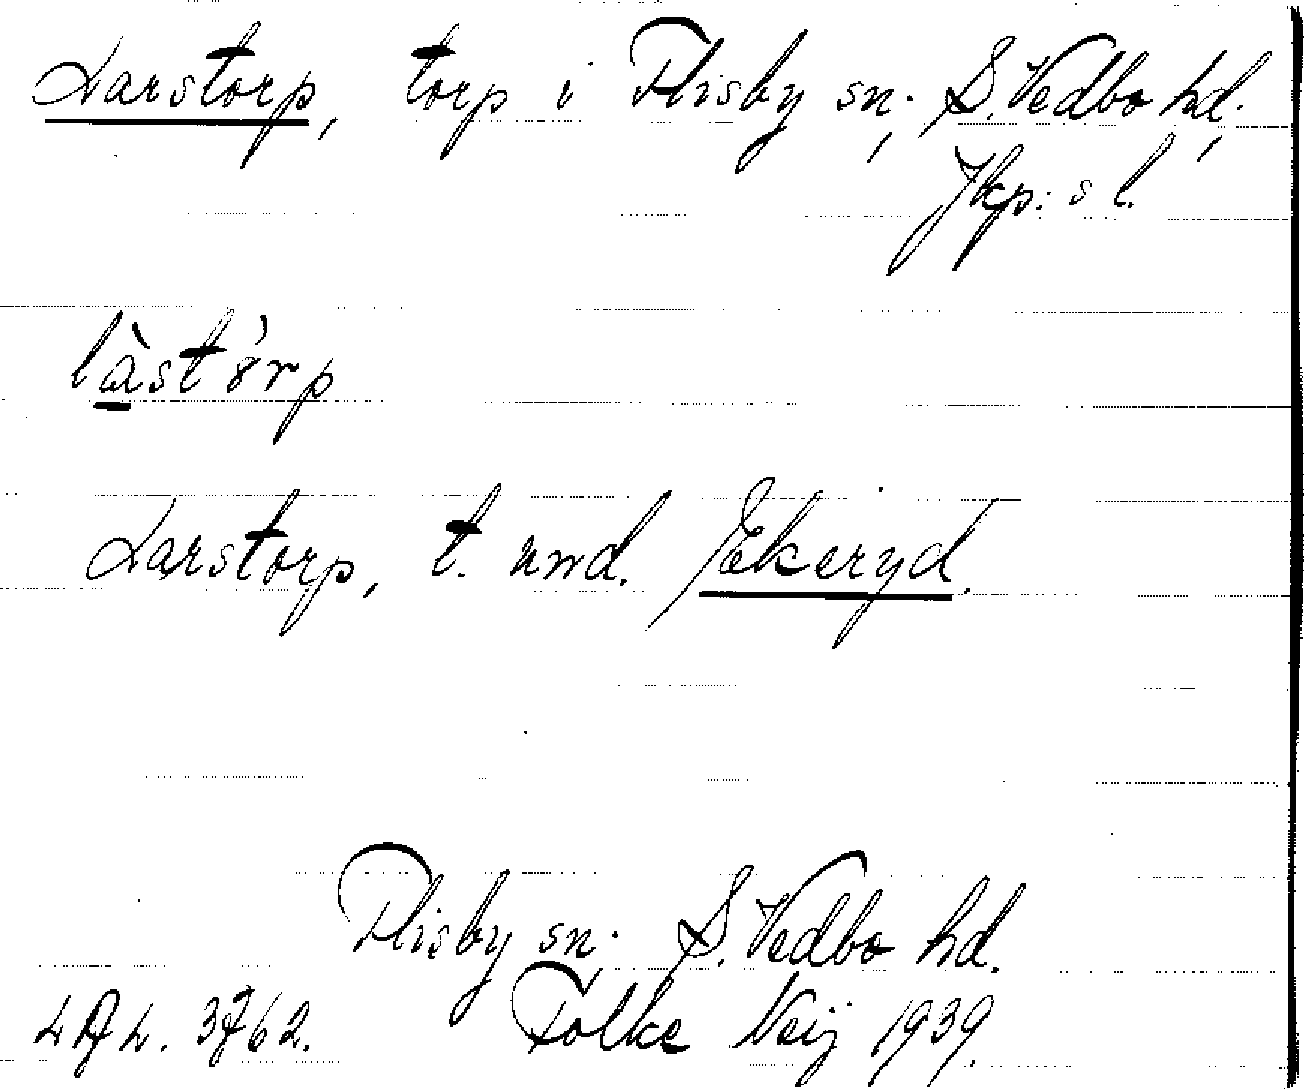 Larstorp, torp i Flisby sn, S. Vedbo hd,
Jkp:s l.
làstórp
Larstorp, t. und. Ekeryd.
Flisby sn. S. Vedbo hd.
Folke Neij 1939.